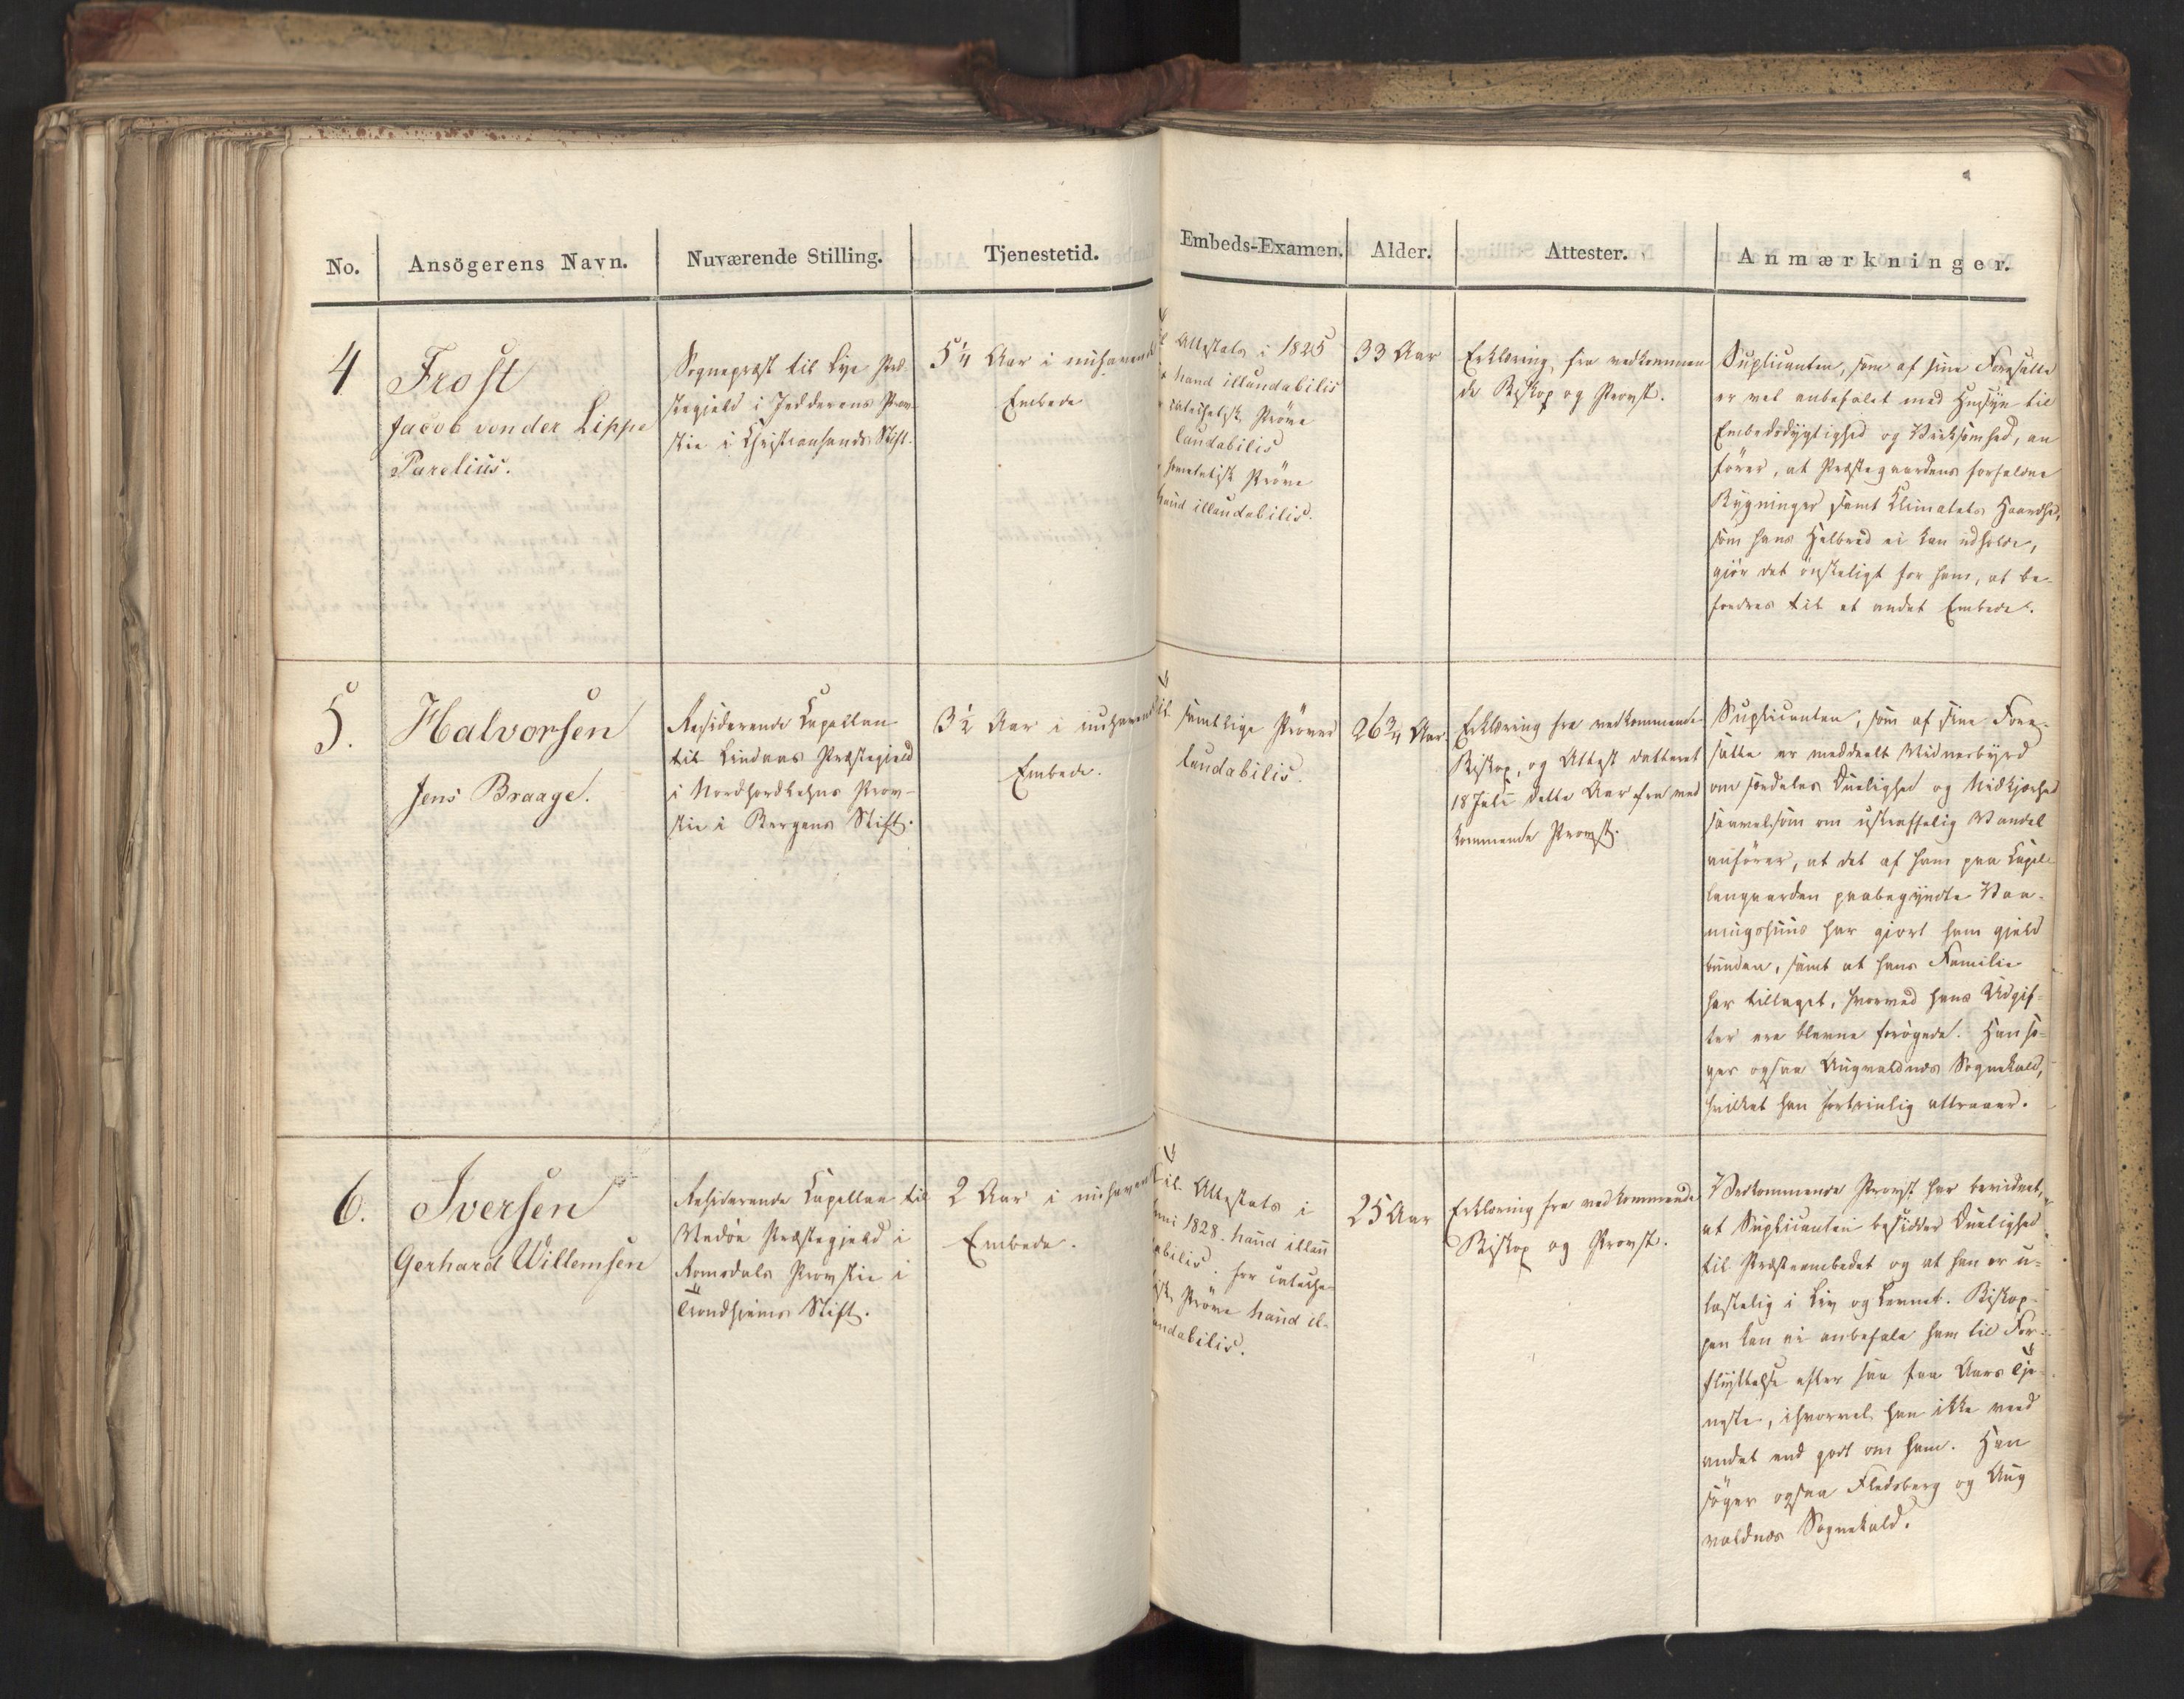 No.
Ansögerens Navn.
Nuværende Stilling.
Tjenestetid.
Embeds-Examen.
Alder.
Attester.
Anmærkninger.
4
Frost
Jacob von der Lippe
Parelius.
Sognepræst til Lye Præ-
stegjeld i Jedderens Prov-
stie i Christiansands Stift.
5 1/4 Aar i nuhavende
Embede
Attestats i 1825
haud illaudabilis
catechetisk Pröve
laudabilis
homiletisk Pröve
haud illaudabilis.
33 Aar
Erklæring fra vedkommen
de Biskop og Provst.
Suplicanten, som af sine Foresatte
er vel anbefalet med Hensyn til
Embedsdygtighed og Virksomhed, an
förer, at Præstegaardens forfaldne
Bygninger samt Climatets Haardhed,
som hans Helbred ei kan udholde,
gjör det önskeligt for ham, at be-
fordres til et andet Embede.
5.
Halvorsen
Jens Braage.
Residerende Capellan
til Lindaas Præstegjeld
i Nordhordlehns Prov-
stie i Bergens Stift.
3 1/2 Aar i nuhavende
Embede.
til samtlige Pröver
laudabilis.
26 3/4 Aar.
Erklæring fra vedkommende
Biskop, og Attest datteret
18 Juli dette Aar fra ved
kommende Provst.
Suplicanten, som af sine Fore-
satte er meddeelt Vidnesbyrd
om særdeles Duelighed og Nidkjærhed
saavelsom om ustraffelig Vandel
anförer, at det af ham paa Capel-
langaarden paabegyndte Vaa-
ningshuus har gjort ham gjeld
bunden, samt at hans Familie
har tiltaget, hvorved hans Udgif-
ter ere blevne forögede. Han sö-
ger ogsaa Augvaldnæs Sognekald,
hvilket han fortrinlig attraaer.
6.
Iversen
Gerhard Willemsen
Residerende Capellan til
Vedöe Præstegjeld i
Romsdals Provstie i
Trondhjems Stift.
2 Aar i nuhavende
Embede.
Til Attestats i
1828 haud illau
dabilis. for cateche-
tisk Pröve haud il-
laudabilis.
25 Aar
Erklæring fra vedkommende
Biskop og Provst.
Vedkommende Provst har bevidnet,
at Suplicanten besidder Duelighed
til Præsteembedet og at han er u-
lastelig i Liv og Levnet. Biskop-
pen kan ei anbefale ham til For-
flyttelse efter saa faa Aars Tje-
neste, ihvorvel han ikke veed
andet end godt om ham. Han
söger ogsaa Flesberg og Aug
valdnæs Sognekald.